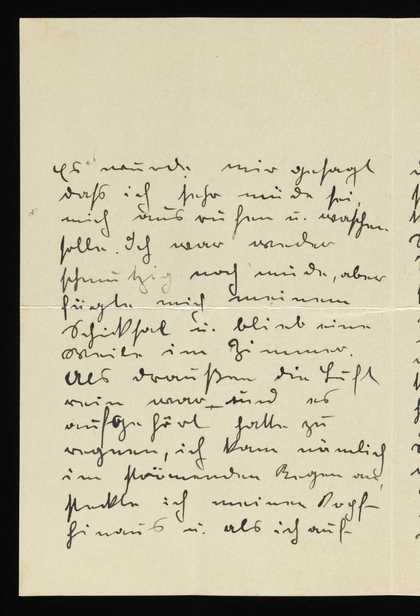 Es wurde mir gesagt
daß ich sehr müde sei,
mich ausruhen u. waschen
solle. Ich war weder
schmutzig noch müde, aber
fügte mich meinem
Schicksal u. blieb eine
Weile im Zimmer.
Als draußen die Luft
rein war und es
aufgehört hatte zu
regnen, ich kam nämlich
im strömenden Regen an,
steckte ich meinen Kopf
hinaus u. als ich auf-